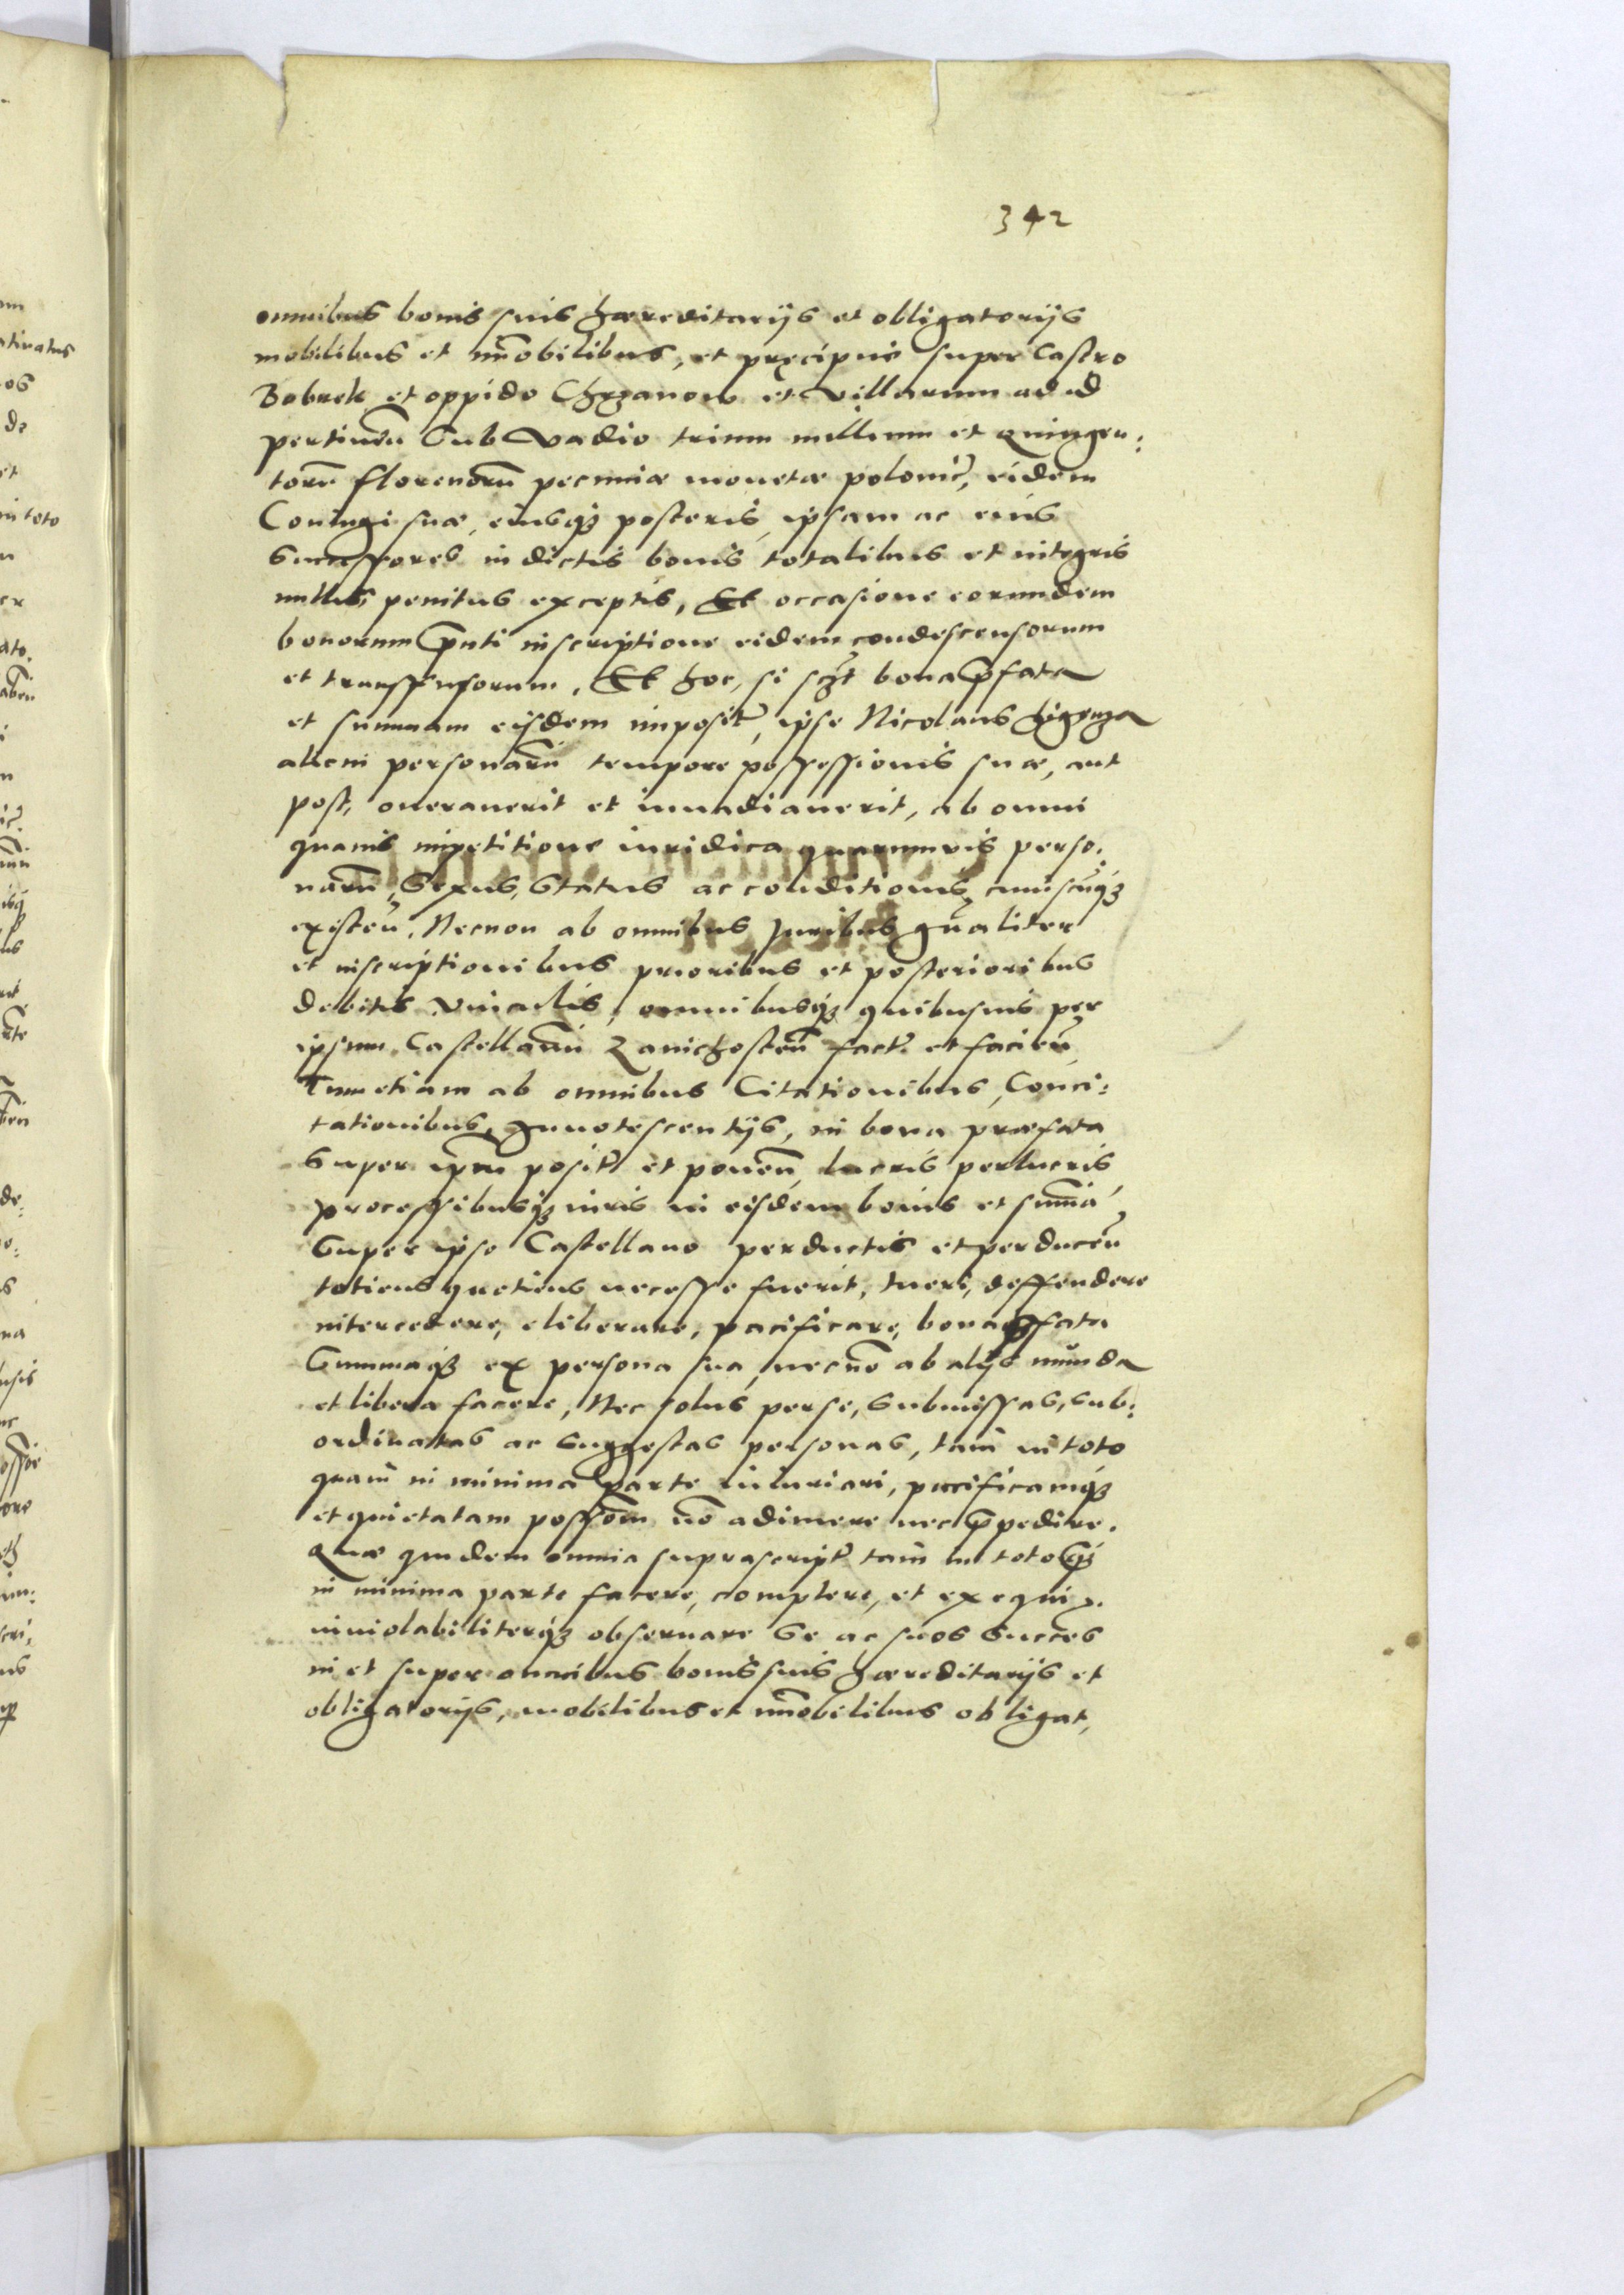 342
omnibus bonis suis hæreditarijs et obligatorijs
mobilibus et im̄obilibus, et præcipue super Castro
Bobrek et oppido Chrzanow et villarum ad id
pertineñ Sub Vadio trium millium et Quingen:
torū florenorū pecuniæ monetæ poloni͡c, eidem
Coniugi suæ, eiusqȝ posteris, ipsam ac eius
Successores in dictis bonis totalibus et integris
nullis, penitus exceptis, Et occasione eorundem
bonorum p̄nti inscriptione eidem condescensorum
et transfusorum. Et hoc, si scȝt bona p̄fata
et summam eisdem imposit͡, ipse Nicolaus
alicui personarū tempore possessionis suæ, aut
post, onerauerit et inuadiauerit, ab omni
quauis impetitione iuridica quarumuis perso:
narū, Sexus, Status ac conditionis cuiuscūqȝ
existeñ. Necnon ab omnibus Juribus gn̄aliter
et inscriptionibus prioribus et posterioribus
debitis vinculis, omnibusqȝ quibusuis per
ipsum Castellanū Zawichosteñ fact͡ et facieñ
Tum etiam ab omnibus Citationibus, Conci:
tationibus, Jnnotescentijs, in bona præfata
Super ip̄m posit͡ et poneñ, lucris perlucris
processibusqȝ iuris in eisdem bonis et sum̄a
Super ipso Castellano perductis et perduceñ
totiens quotiens necesse fuerit, tueri, deffendere
intercedere, eliberare, pacificare, bona p̄fata
Summaqȝ ex persona sua, necnō ab alijs munda
et libera facere, Nec solus per se, Submissas, Sub:
ordinatas ac Suggestas personas, tam in toto
quam in minima parte iniuriari, pacificamqȝ
et quietatam possōem nō adimere nec p̄pedire.
Quæ quidem omnia suprascript͡ tam in toto qȝ
in minima parte facere, complere, et exequi.
inuiolabiliterqȝ obseruare Se ac suos Succes
in et super omnibus bonis suis hæreditarijs et
obligatorijs, mobilibus et im̄obilibus obligat,